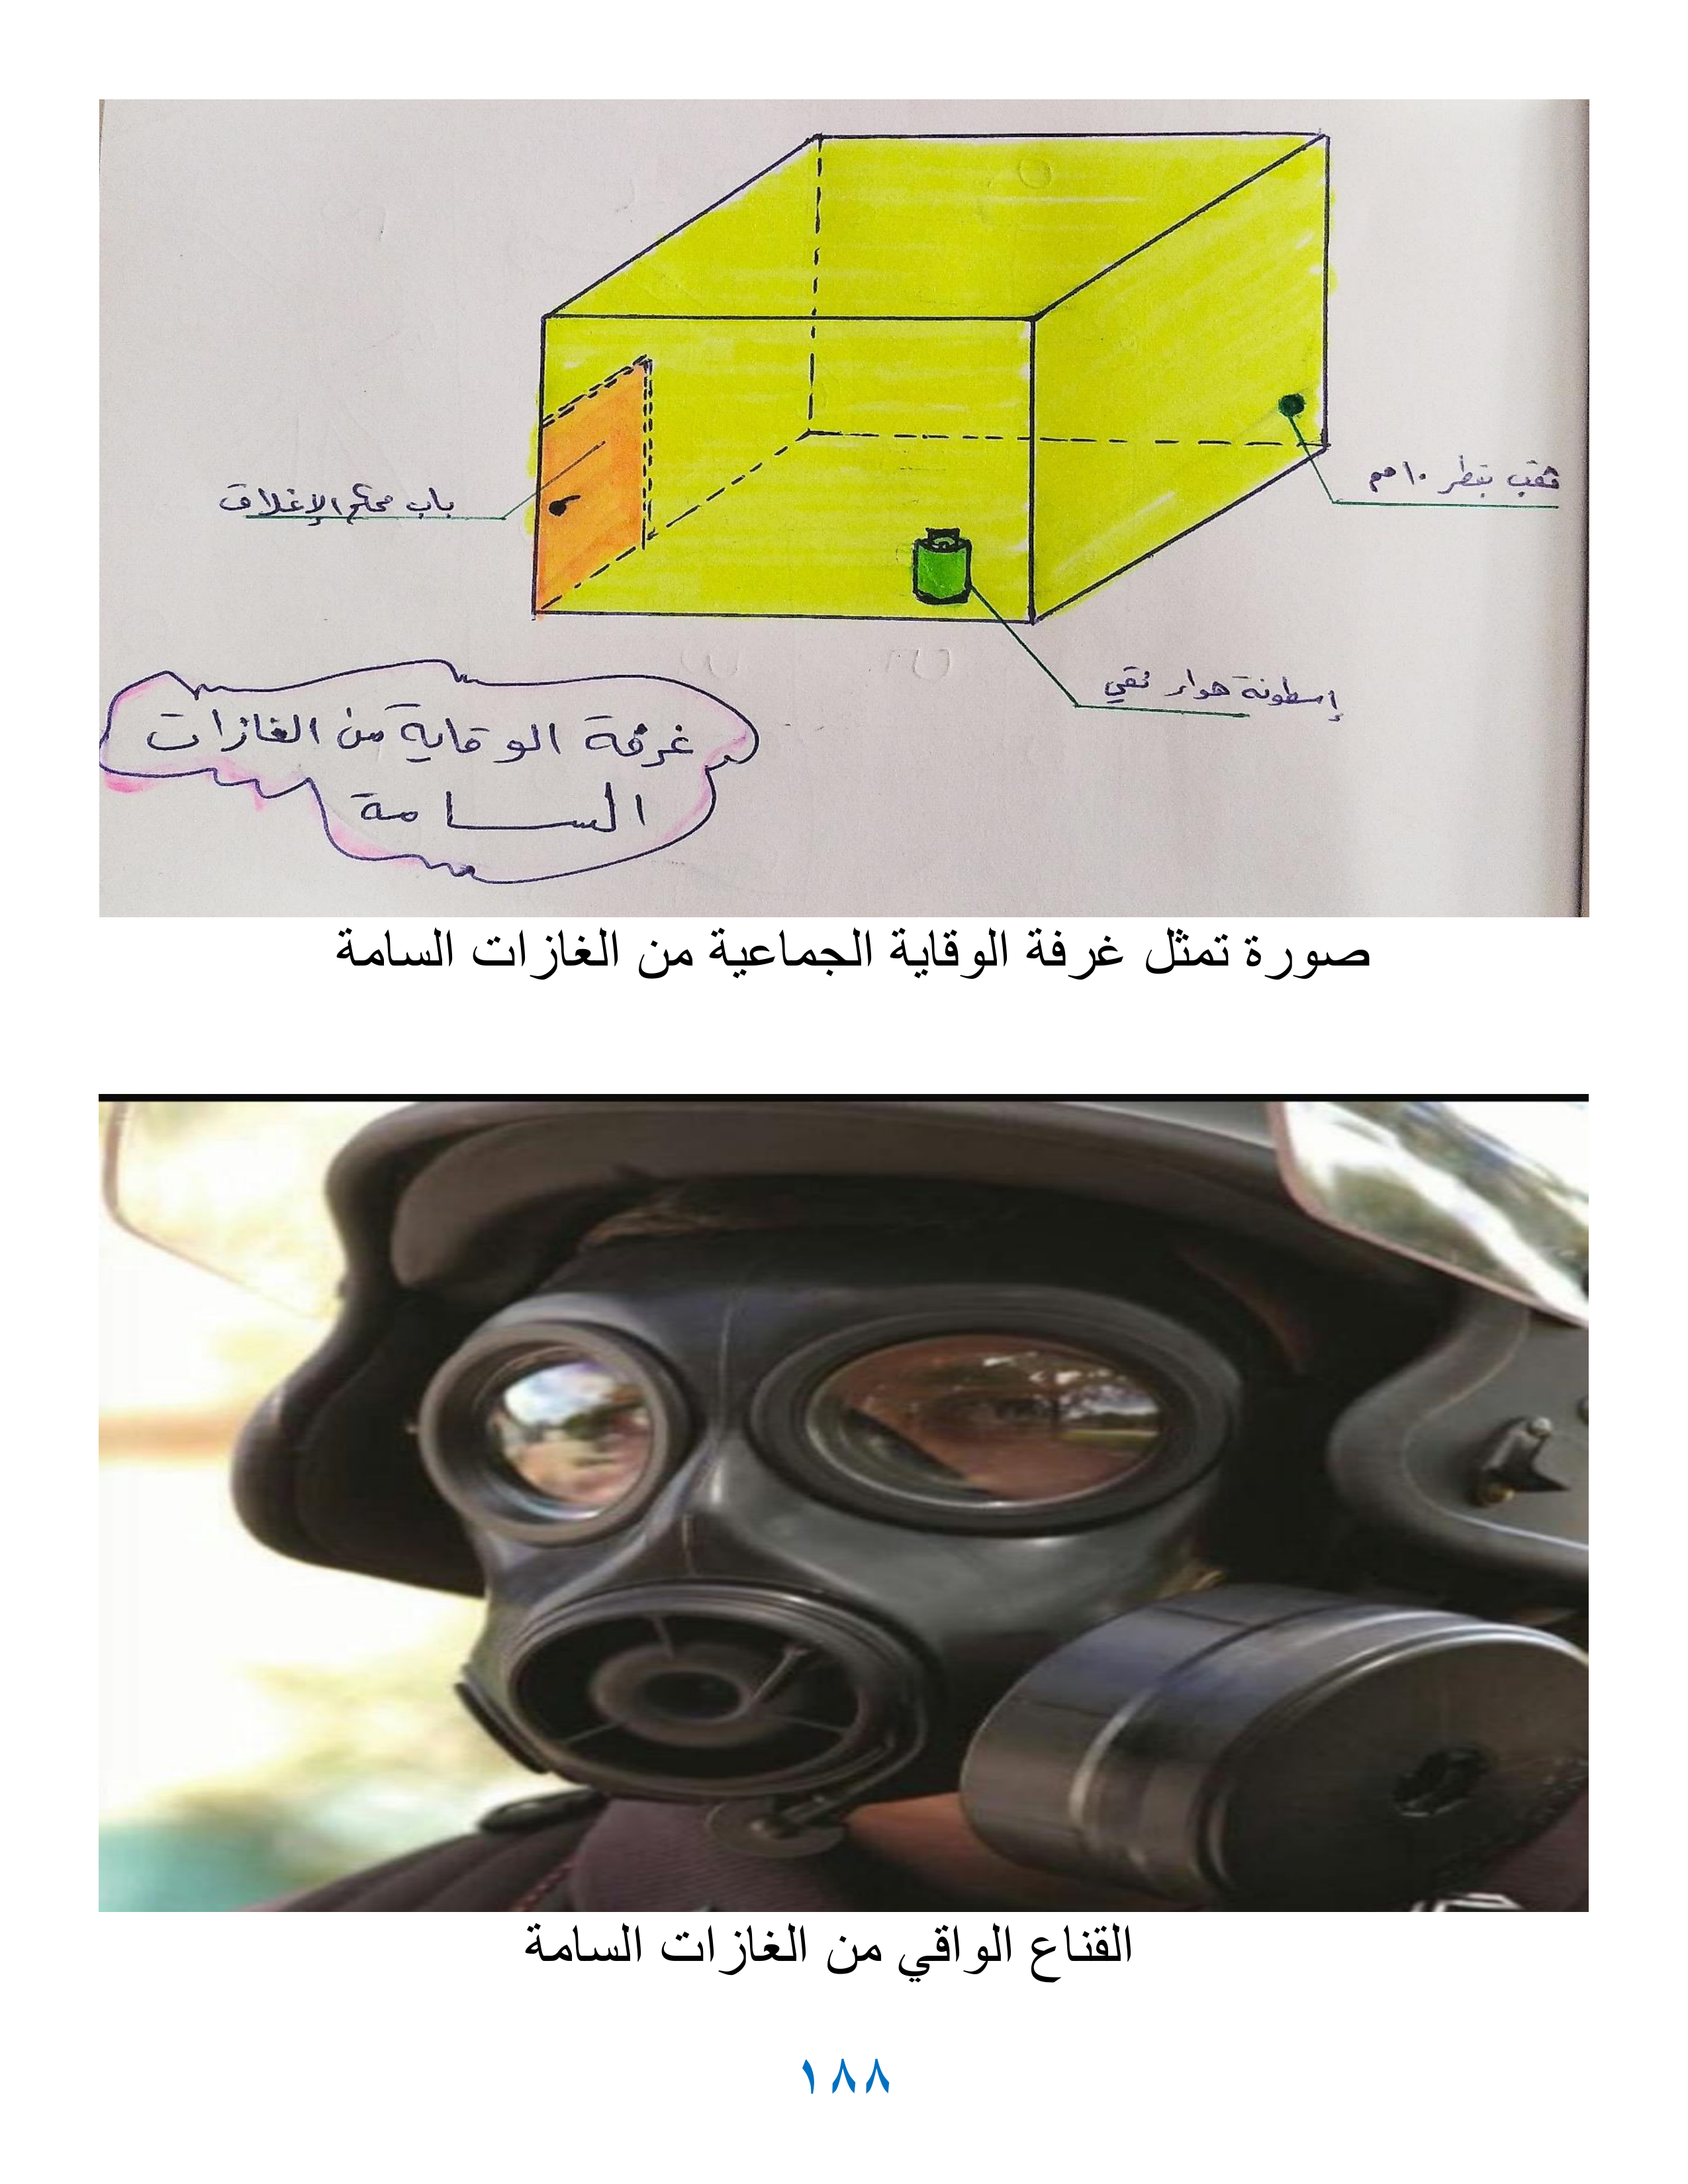 ثقب بقطر ١٠ مم
باب محكم الإغلاق
إسطونة هواء نقي
غرفة الوقاية من الغازات
السامة
صورة تمثل غرفة الوقاية الجماعية من الغازات السامة
القناع الواقي من الغازات السامة
١٨٨